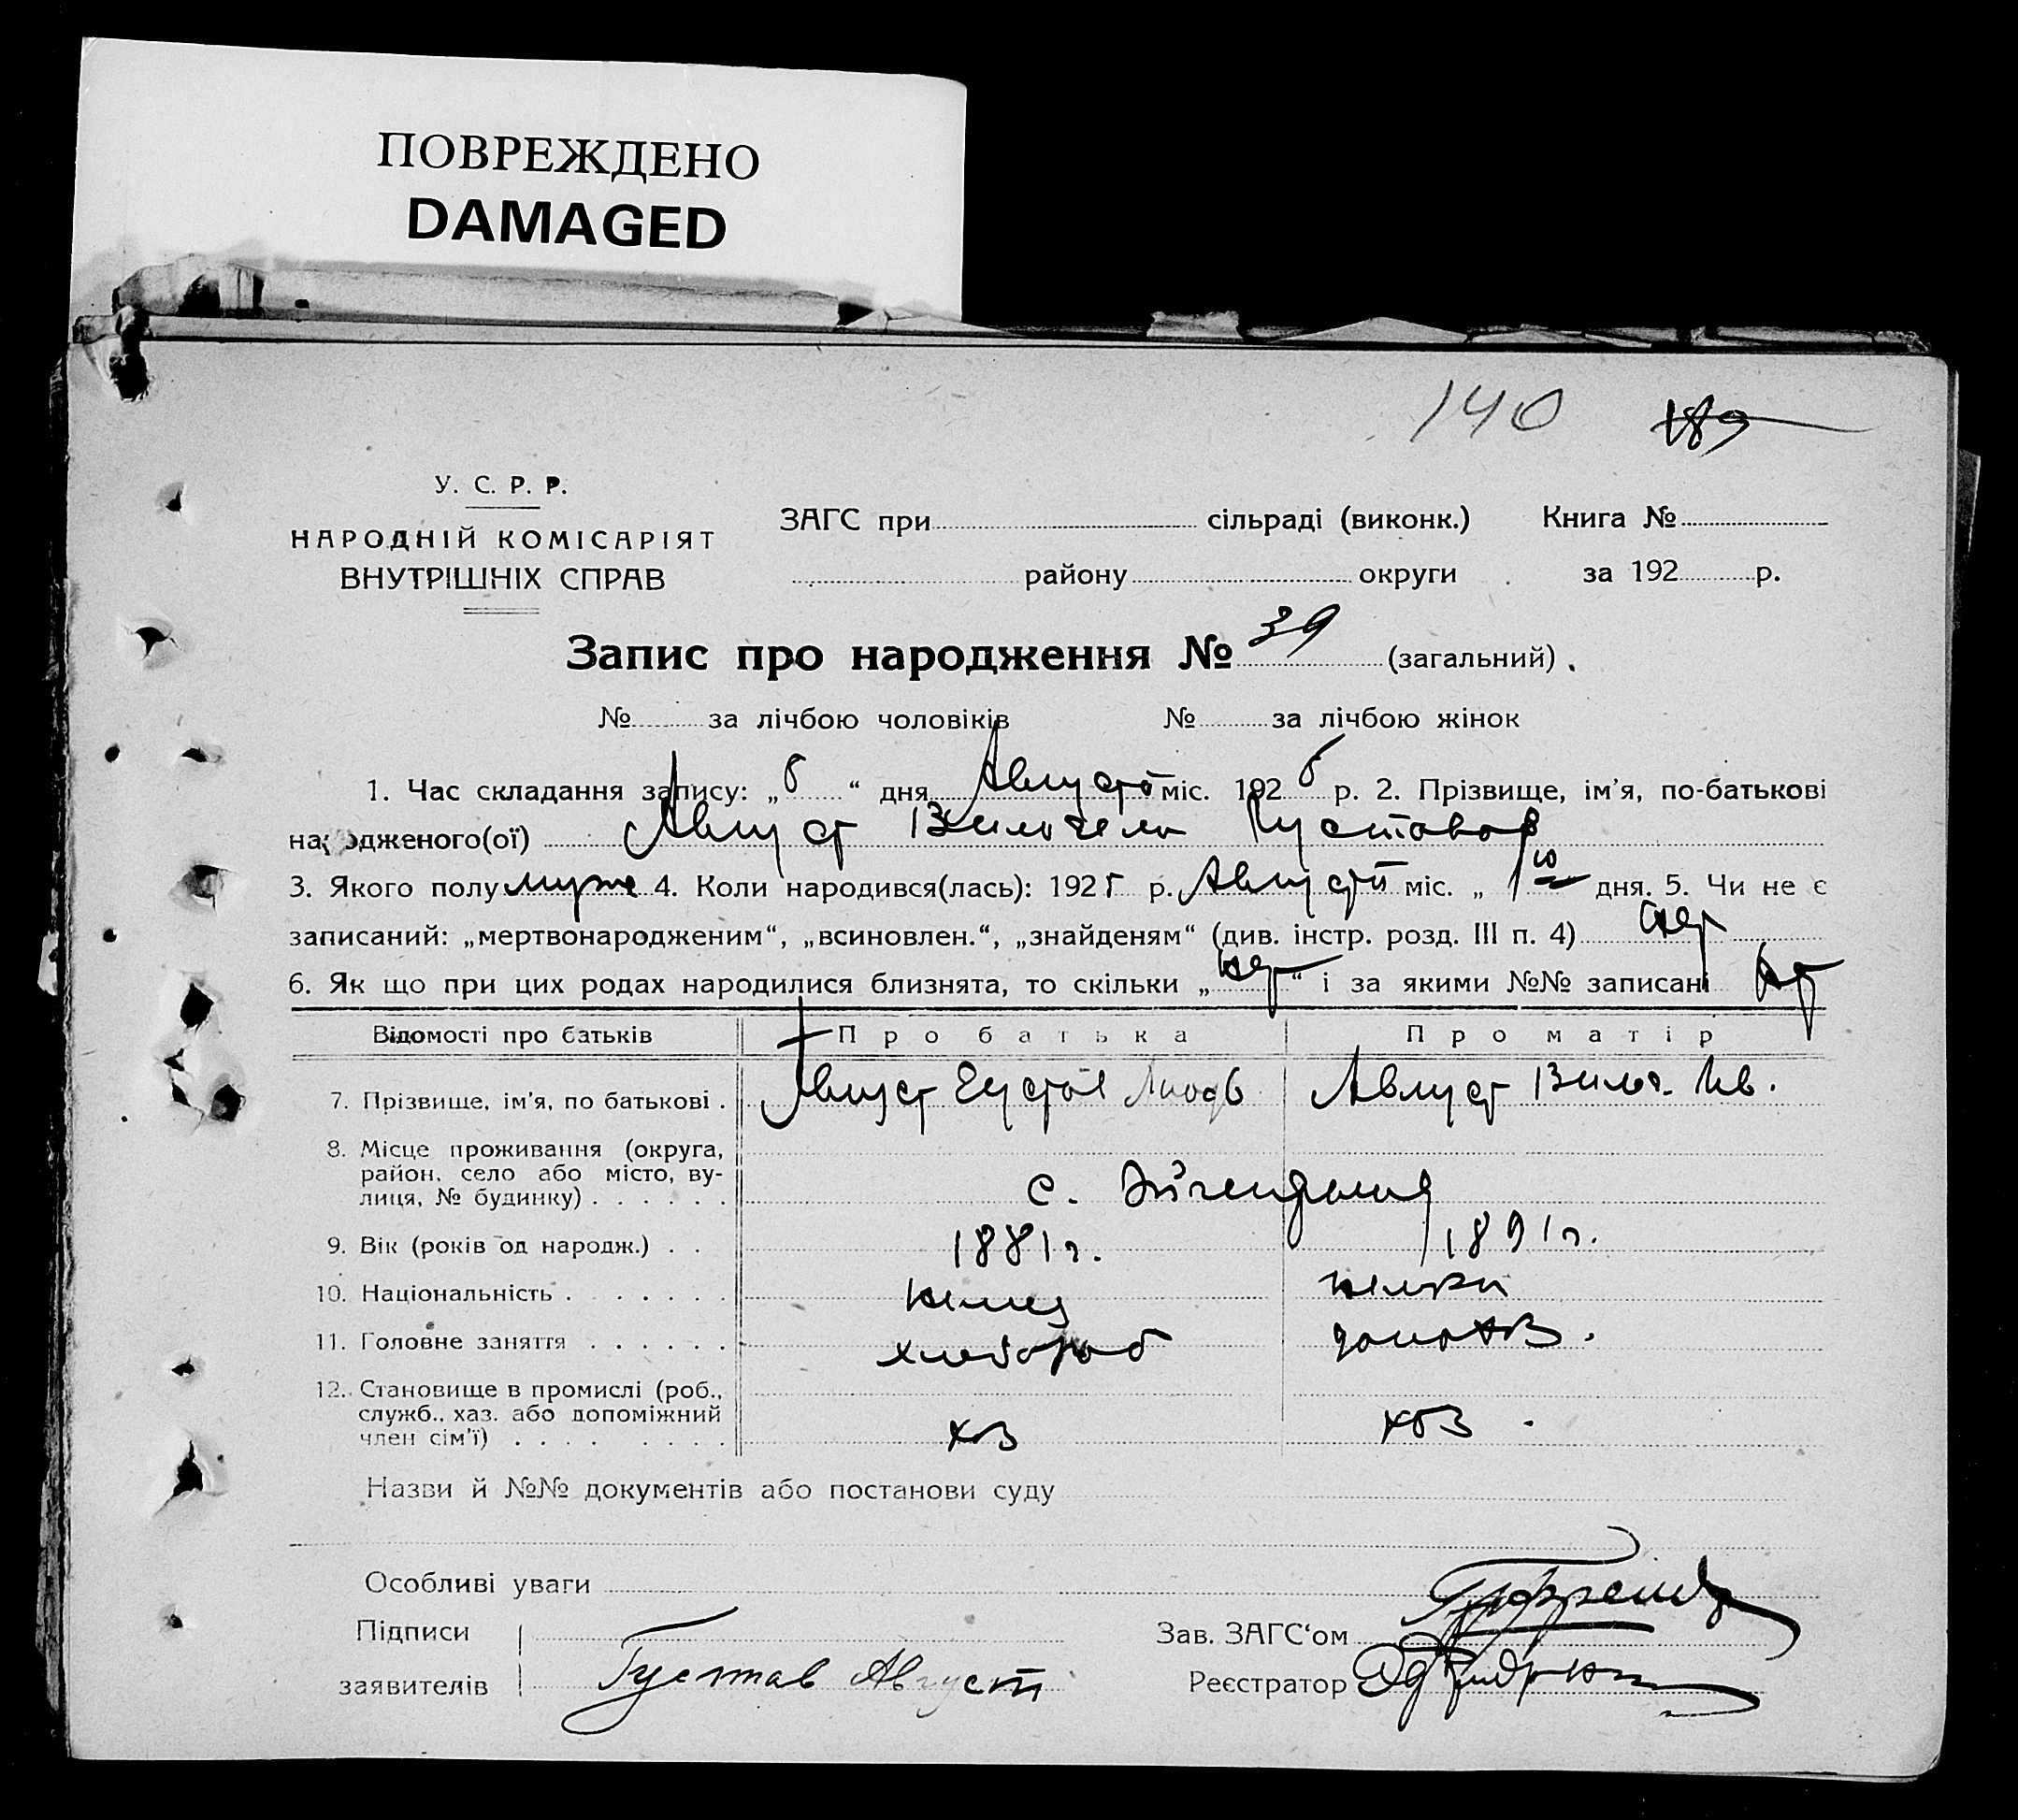 ПОВРЕЖДЕНО
DAMAGED
140 189
У. С. Р. Р.
НАРОДНІЙ КОМІСАРІЯТ
ВНУТРІШНІХ СПРАВ
ЗАГС при сільраді (виконк.) Книга №
району округи за 192 р.
Запис про народження № 39 (загальний).
№ за лічбою чоловіків № за лічбою жінок
1. Час складання запису: „6“ дня Августа міс. 1926 р. 2. Прізвище, ім'я, по-батькові
народженого(ої) Август Вильгельм Густавов
3. Якого полу муже 4. Коли народився(лась): 192 р. Августа міс. „1го“ дня. 5. Чи не є
записаний: „мертвонародженим“, „всиновлен.“, „знайденям“ (див. інстр. розд. III п. 4) нет
6. Як що при цих родах народилися близнята, то скільки „нет“ і за якими №№ записані нет
Відомості про батьків Про батька Про матір
7. Прізвище, ім'я, по батькові . Август Густав Август Вильг. Ив.
8. Місце проживання (округа,
район, село або місто, ву-
лиця, № будинку) . . . . . . с. Эйгенфельд
9. Вік (років од народж.) . . 1881 г. 1891 г.
10. Національність . . . . . . . немец немка
11. Головне заняття . . . . . . хлебороб домохоз.
12. Становище в промислі (роб.,
служб., хаз. або допоміжний
член сім'ї) . . . . . . . . хоз хоз.
Назви й №№ документів або постанови суду
Особливі уваги
Підписи Зав. ЗАГС‘ом
заявителів Густав Август Реєстратор